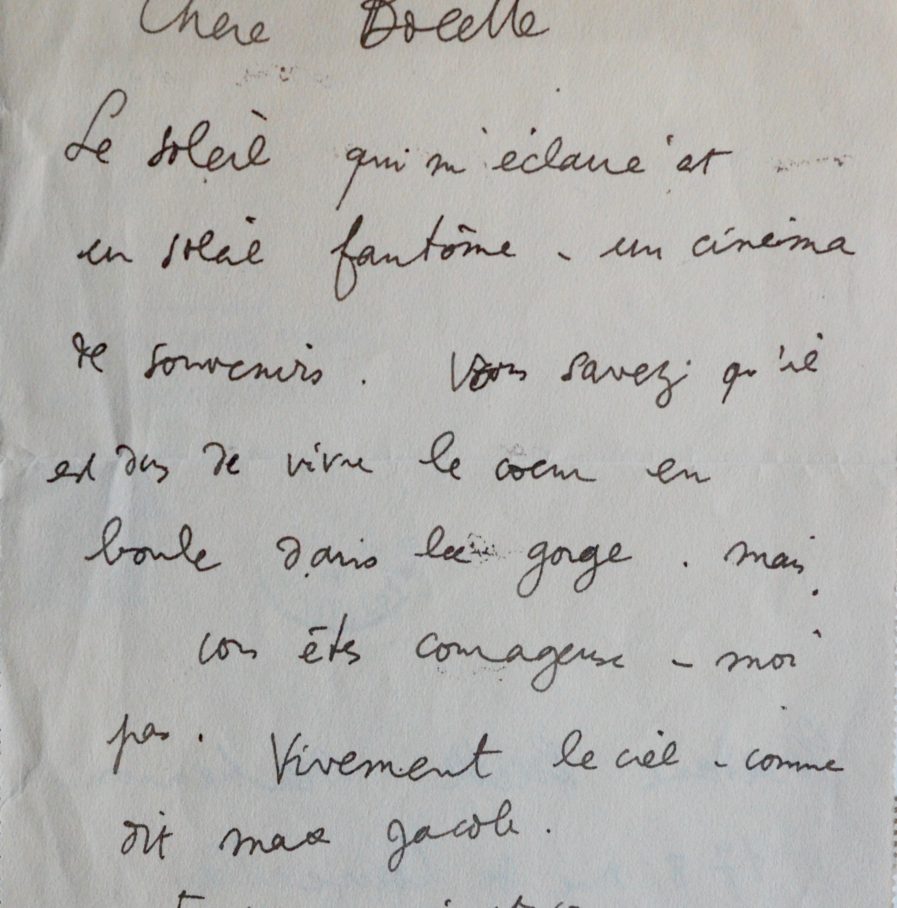 Chere
Le soleil qui m'éclaire est
un soleil fantôme - un cinéma
de souvenirs. Vous savez qu'il
est dur de vivre le coeur en
boule dans la gorge. mais
vous êtes courageuse - moi
pas. Vivement le ciel - comme
dit max Jacob.